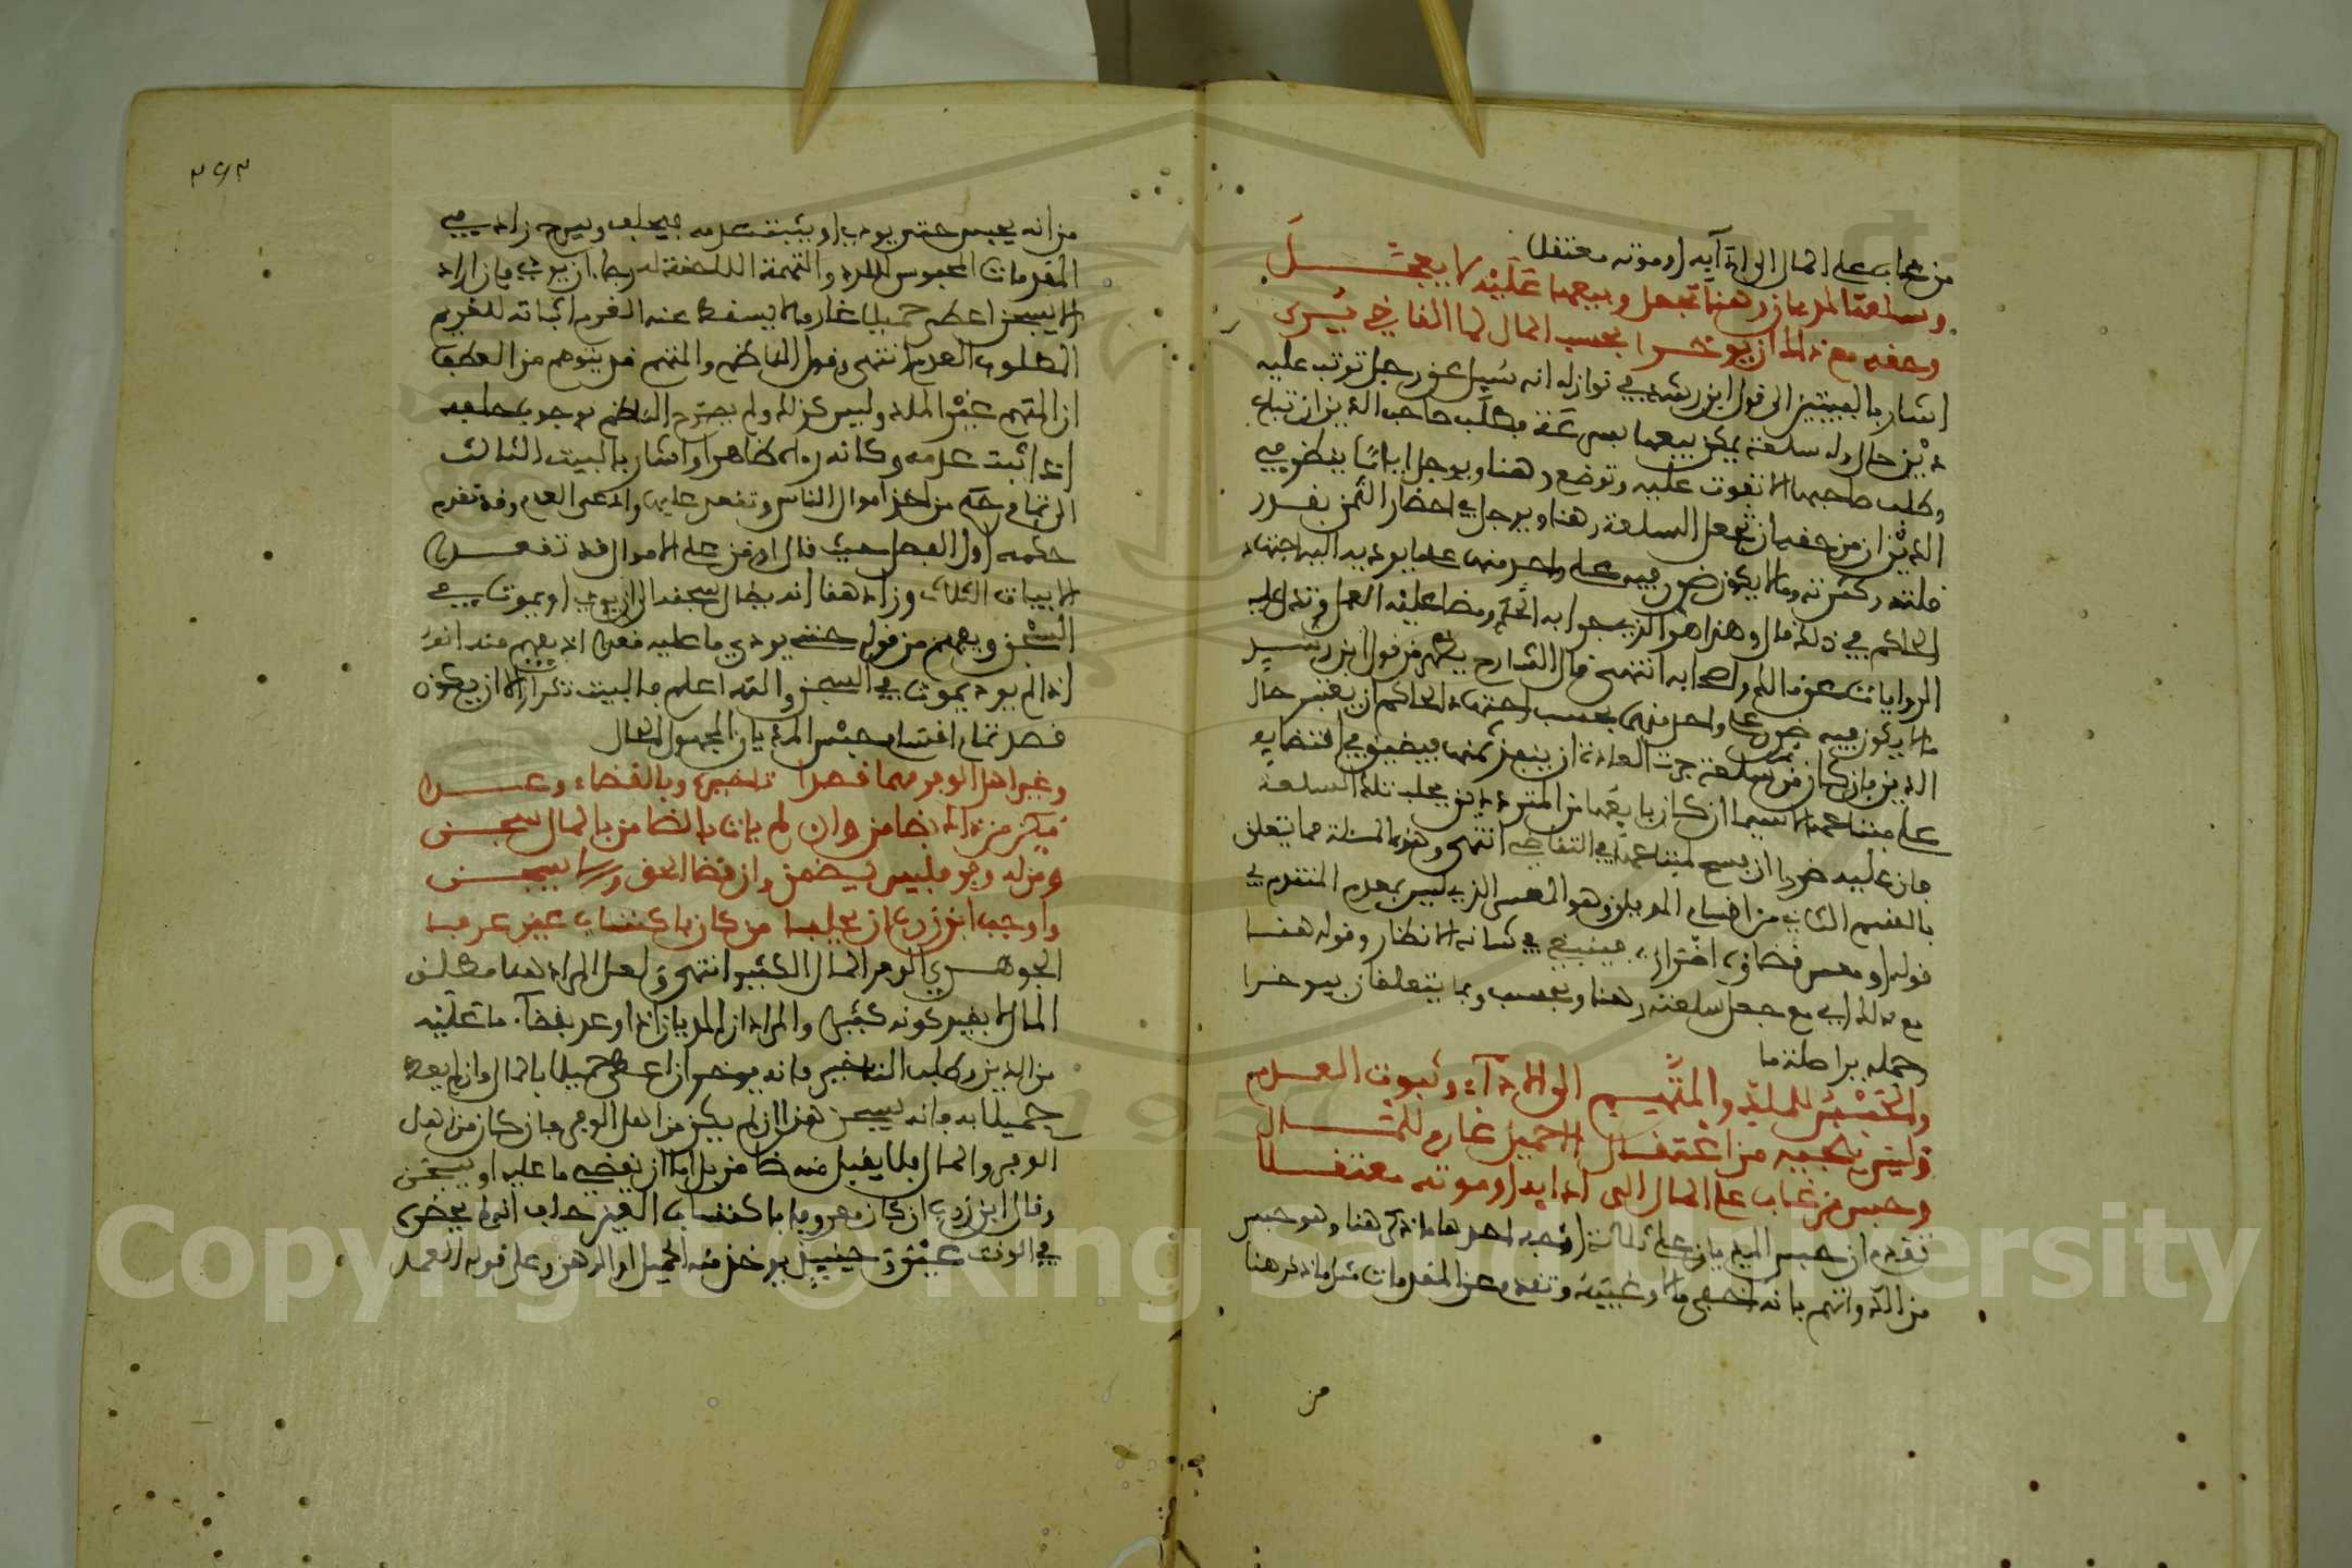 من غاب على المال الى ادآيه او موته معتقلا
وسلعة المديان رهنا تجعل وبيعها عليه لا يعجل
وحقه مع ذاك ان يوخرا بحسب المال لما القاضي يرى
اشار بالبيتين الى قول ابن رشد في نوازله انه سئل عن رجل ترتب عليه
دين حال وله سلعة يمكن بيعها بسرعة فطلب صاحب الدين ان تباع
وطلب صاحبها الا تفوت عليه وتوضع رهنا ويوجل اياما ينظر فيه
الدين ان من حقه ان تجعل السلعة رهنا ويوجل في احضار الثمن بقدر
قلته وكثرته وما لا يكون ضرر فيه على واحد منهما على ما يوديه اليه اجتهاد
الحاكم في ذلك قال وهذا هو الذي جرا به الحكم ومضا عليه العمل وتدل عليه
الروايات عن مالك واصحابه انتهى قال الشارح يظهر من قول ابن رشد
ما لا يكون فيه ضرر على واحد منهما بحسب اجتهاد الحاكم ان يعتبر حال
الدين فان كان من سلعة جرت العادة ان ينقد ثمنها فيضيق في اقتضايه
على مبتاعها لا سيما ان كان بايعها من المترددين بجلب تلك السلعة
فان عليه ضررا ان يسمح لمبتاعها في التقاضي انتهى وهذه المسئلة مما يتعلق
بالقسم الثاني من اقسام المديان وهو المعسر الذي ليس بمعدم المتقدم في
قوله او معسر قضاؤه اضرار فينبغي في شانه الانظار وقوله هنا
مع ذاك اي مع جعل سلعته رهنا وبحسب وبما يتعلقان بيوخرا
وجملة يرا صلة ما
والحبس للملد والمتهم الى الادآء وثبوت العدم
وليس ينجيه من اعتقال الا حميل غارم للمال
وحبس من غاب على المال الى ادايه او موته معتقلا
تقدم ان حبس المديان على ثلاثة اوجه احدها ما ذكر هنا وهو حبس
من الد واتهم بانه اخفى مالا وغيبه وتقدم عن المقدمات مثل ما ذكر هنا
من
٣٦٣
من انه يحبس حتى يودي او يثبت عدمه فيحلف ويسرح زاد في
المقدمات المحبوس للدد والتهمة اللاحقة له رجاء ان يودي فان اراد
الا يسجن اعطى حميلا غارما لا يسقط عنه الغرم اثباته للغريم
المطلوب العدم انتهى وقول الناظم والمتهم قد يتوهم من العطف
ان المتهم غير الملد وليس كذلك ولم يصرح الناظم بوجوب حلفه
اذا اثبت عدمه وكانه راه ظاهرا واشار بالبيت الثالث
الى تمام حكم من اخذ اموال الناس وتقعد عليها وادعى العدم وقد تقدم
حكمه اول الفصل حيث قال او من على الاموال قد تقعدا
الابيات الثلاث وزاد هنا انه يطال سجنه الى ان يودي او يموت في
السجن ويفهم من قوله حتى يودي ما عليه قعدا اذ يفهم منه انه
اذا لم يود يموت في السجن والله اعلم فالبيت تكرار الا ان يكون
قصد تمام اقسام حبس المديان المجهول الحال
وغير اهل الوفر مهما قصدا تاخيره وبالقضاء وعدا
مكن من ذاك بضامن وان لم يات بالضامن بالمال سجن
ومن له وفر فليس يضمن فان قضا الحق والا يسجن
واوجب ابن زرب ان يحلفا من كان باكتساب عين عرفا
الجوهري الوفر المال الكثير انتهى ولعل المراد هنا مطلق
المال لا بقيد كونه كثيرا والمراد ان المديان اذا وعد بقضآء ما عليه
من الدين وطلب التاخير فانه يوخر ان اعطى حميلا بالمال وان لم يعط
حميلا به فانه يسجن هذا ان لم يكن من اهل الوفر فان كان من اهل
الوفر والمال فلا يقبل منه ضامن بل اما ان يقضي ما عليه او يسجن
وقال ابن زرب ان كان معروفا باكتساب العين حلف انه لم يحضره
في الوقت عين وحينئذ يوخذ منه الحميل او الرهن وعلى قوله العمل